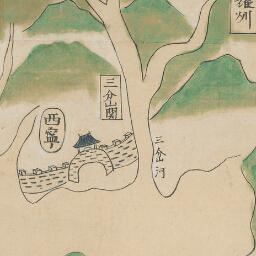 羅州
三分山關
西寧
三岔河